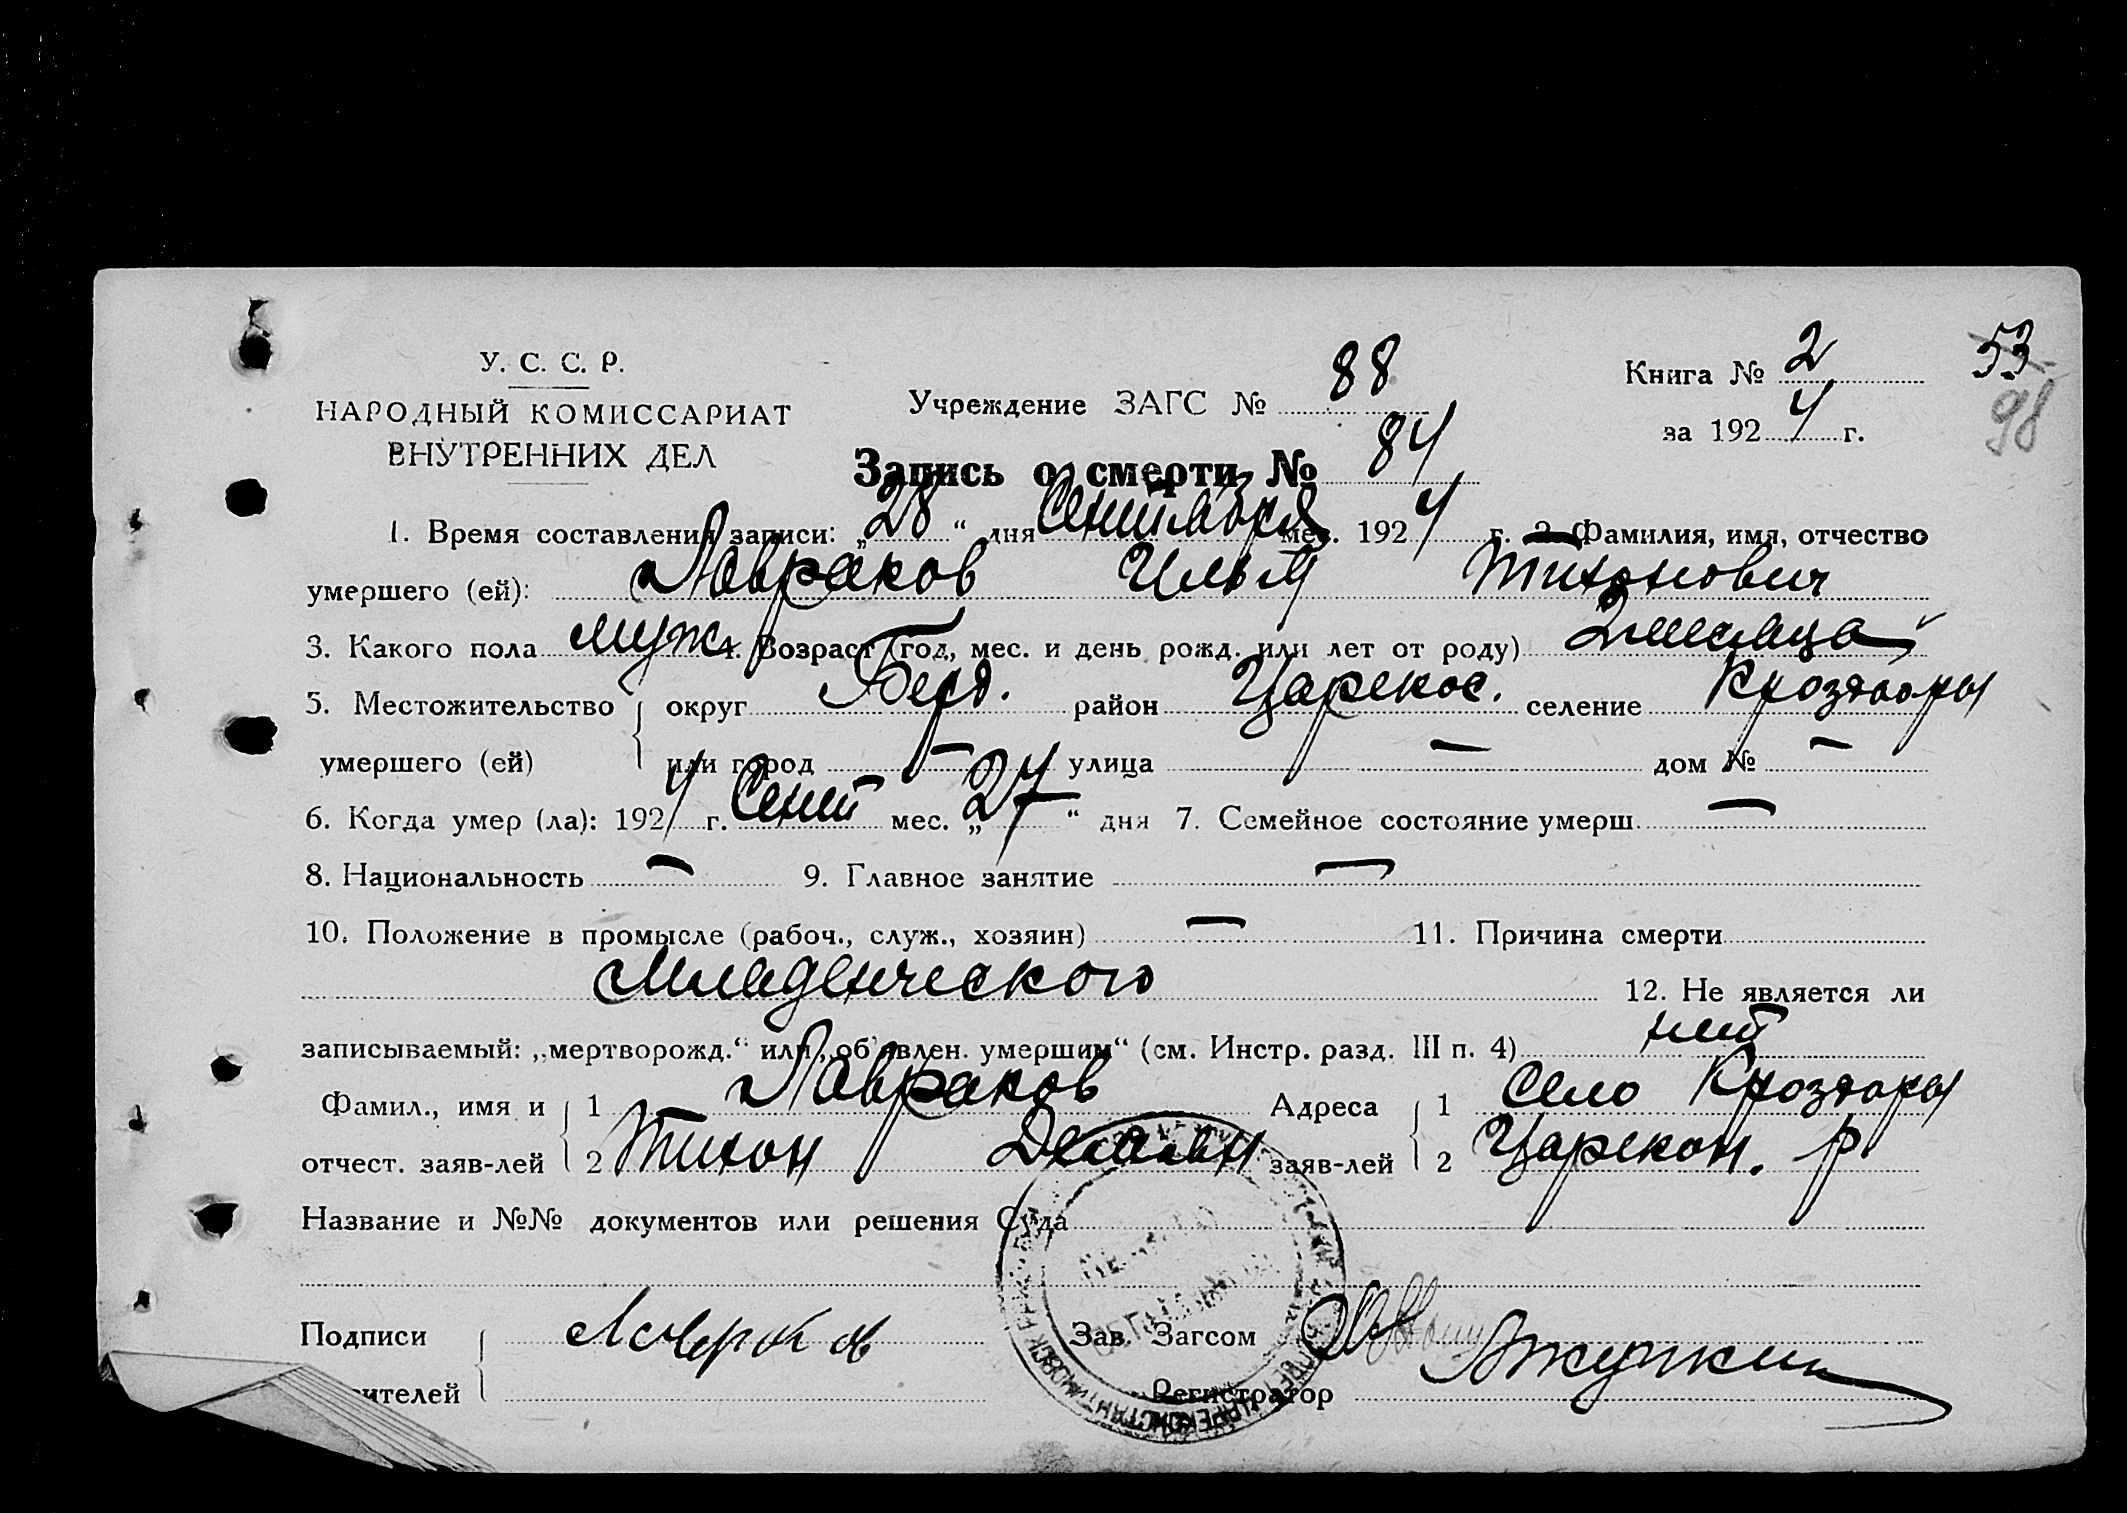 У. С. С. Р.
НАРОДНЫЙ КОМИССАРИАТ
ВНУТРЕННИХ ДЕЛ
Учреждение ЗАГС № 88
Книга № 2
за 1924 г.
53
98
Запись о смерти № 84
1. Время составления записи: „28“ дня Сентября мес. 1924 г. 2. Фамилия, имя, отчество
умершего (ей): Лавраков Илья Тихонович
3. Какого пола муж 4. Возраст (год, мес. и день рожд. или лет от роду) 2 месяца
5. Местожительство округ Берд. район Царекос. селение
умершего (ей) или город — улица — дом № —
6. Когда умер (ла): 1924 г. Сент мес. „27“ дня 7. Семейное состояние умерш. —
8. Национальность — 9. Главное занятие —
10. Положение в промысле (рабоч., служ., хозяин) — 11. Причина смерти
Младенческого 12. Не является ли
записываемый: „мертворожд.“ или „об'явлен. умершим“ (см. Инстр. разд. III п. 4) нет
Фамил., имя и 1 Лавраков Адреса 1 Село
отчест. заяв-лей 2 Тихон заяв-лей 2 Царекон. р
Название и №№ документов или решения Суда
Подписи Лавраков Зав. Загсом
ителей Регистратор